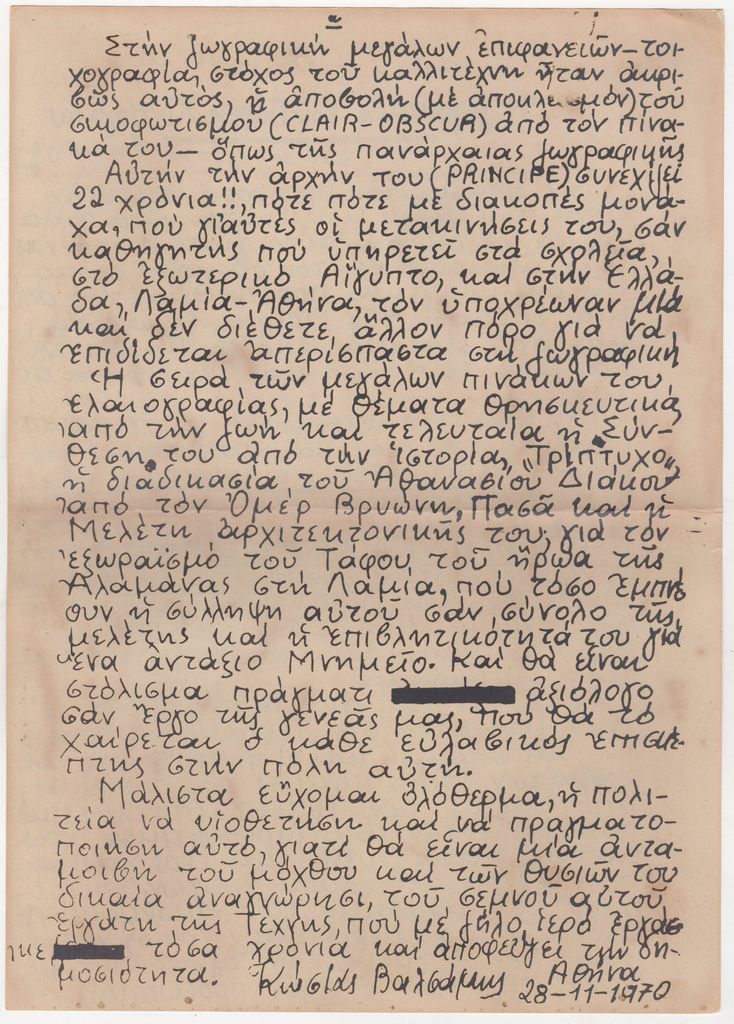 α
Στήν ζωγραφικήν μεγάλων ἐπιφανειῶν-τοι-
χογραφία, στόχος τοῦ καλλιτέχνη ἦταν ἀκρι-
βῶς αὐτός, ἡ ἀποβολή (μέ ἀποκλεισμόν) τοῦ
σκιοφωτισμοῦ (CLAIR-OBSCUR) ἀπό τόν πίνα-
κά του — ὅπως τῆς πανάρχαιας ζωγραφικῆς
Αὐτήν τήν ἀρχήν του (PRINCIPE) συνεχίζει
22 χρόνια!!, πότε πότε μέ διακοπές μονά-
χα, πού γι'αὐτές οἱ μετακινήσεις του, σάν
καθηγητής πού ὑπηρετεῖ στά σχολεῖα,
στό ἐξωτερικό Αἴγυπτο, καί στήν Ἑλλά-
δα, Λαμία-Ἀθήνα, τόν ὑποχρέωναν μιά
καί δέν διέθετε ἄλλον πόρο γιά νά
ἐπιδίδεται ἀπερίσπαστα στή ζωγραφική
Ἡ σειρά τῶν μεγάλων πινάκων του
ἐλαιογραφίας, μέ θέματα θρησκευτικά
ἀπό τήν ζωή καί τελευταία ἡ „Σύν-
θεση" του ἀπό τήν ἱστορία, „Τρίπτυχο"
ἡ διαδικασία τοῦ Ἀθανασίου Διάκου
ἀπό τόν Ὀμέρ Βρυώνη, Πασᾶ καί ἡ
Μελέτη ἀρχιτεκτονικῆς του, γιά τόν
ἐξωραϊσμό τοῦ Τάφου τοῦ ἥρωα τῆς
Ἀλαμάνας στή Λαμία, πού τόσο ἐμπνέ-
ουν ἡ σύλληψη αὐτοῦ σάν σύνολο τῆς
μελέτης καί ἡ ἐπιβλητικότητά του γιά
ἕνα ἀντάξιο Μνημεῖο. Καί θά εἶναι
στόλισμα πράγματι ἀξιόλογο
σάν ἔργο τῆς γενεᾶς μας, πού θά τό
χαίρεται ὁ κάθε εὐλαβικός ἐπισκέ-
πτης στήν πόλη αὐτή.
Μάλιστα εὔχομαι ὁλόθερμα, ἡ πολι-
τεία νά υἱοθετήση καί νά πραγματο-
ποιήση αὐτό, γιατί θά εἶναι μία ἀντα-
μοιβή τοῦ μόχθου καί τῶν θυσιῶν του
δικαία ἀναγνώρησι, τοῦ σεμνοῦ αὐτοῦ
ἐργάτη τῆς Τέχνης, πού μέ ζῆλο ἱερό ἐργάσ
τηκε τόσα χρόνια καί ἀποφεύγει τήν δη-
μοσιότητα. Κώστας Βαλσάμης Ἀθήνα
28-11-1970